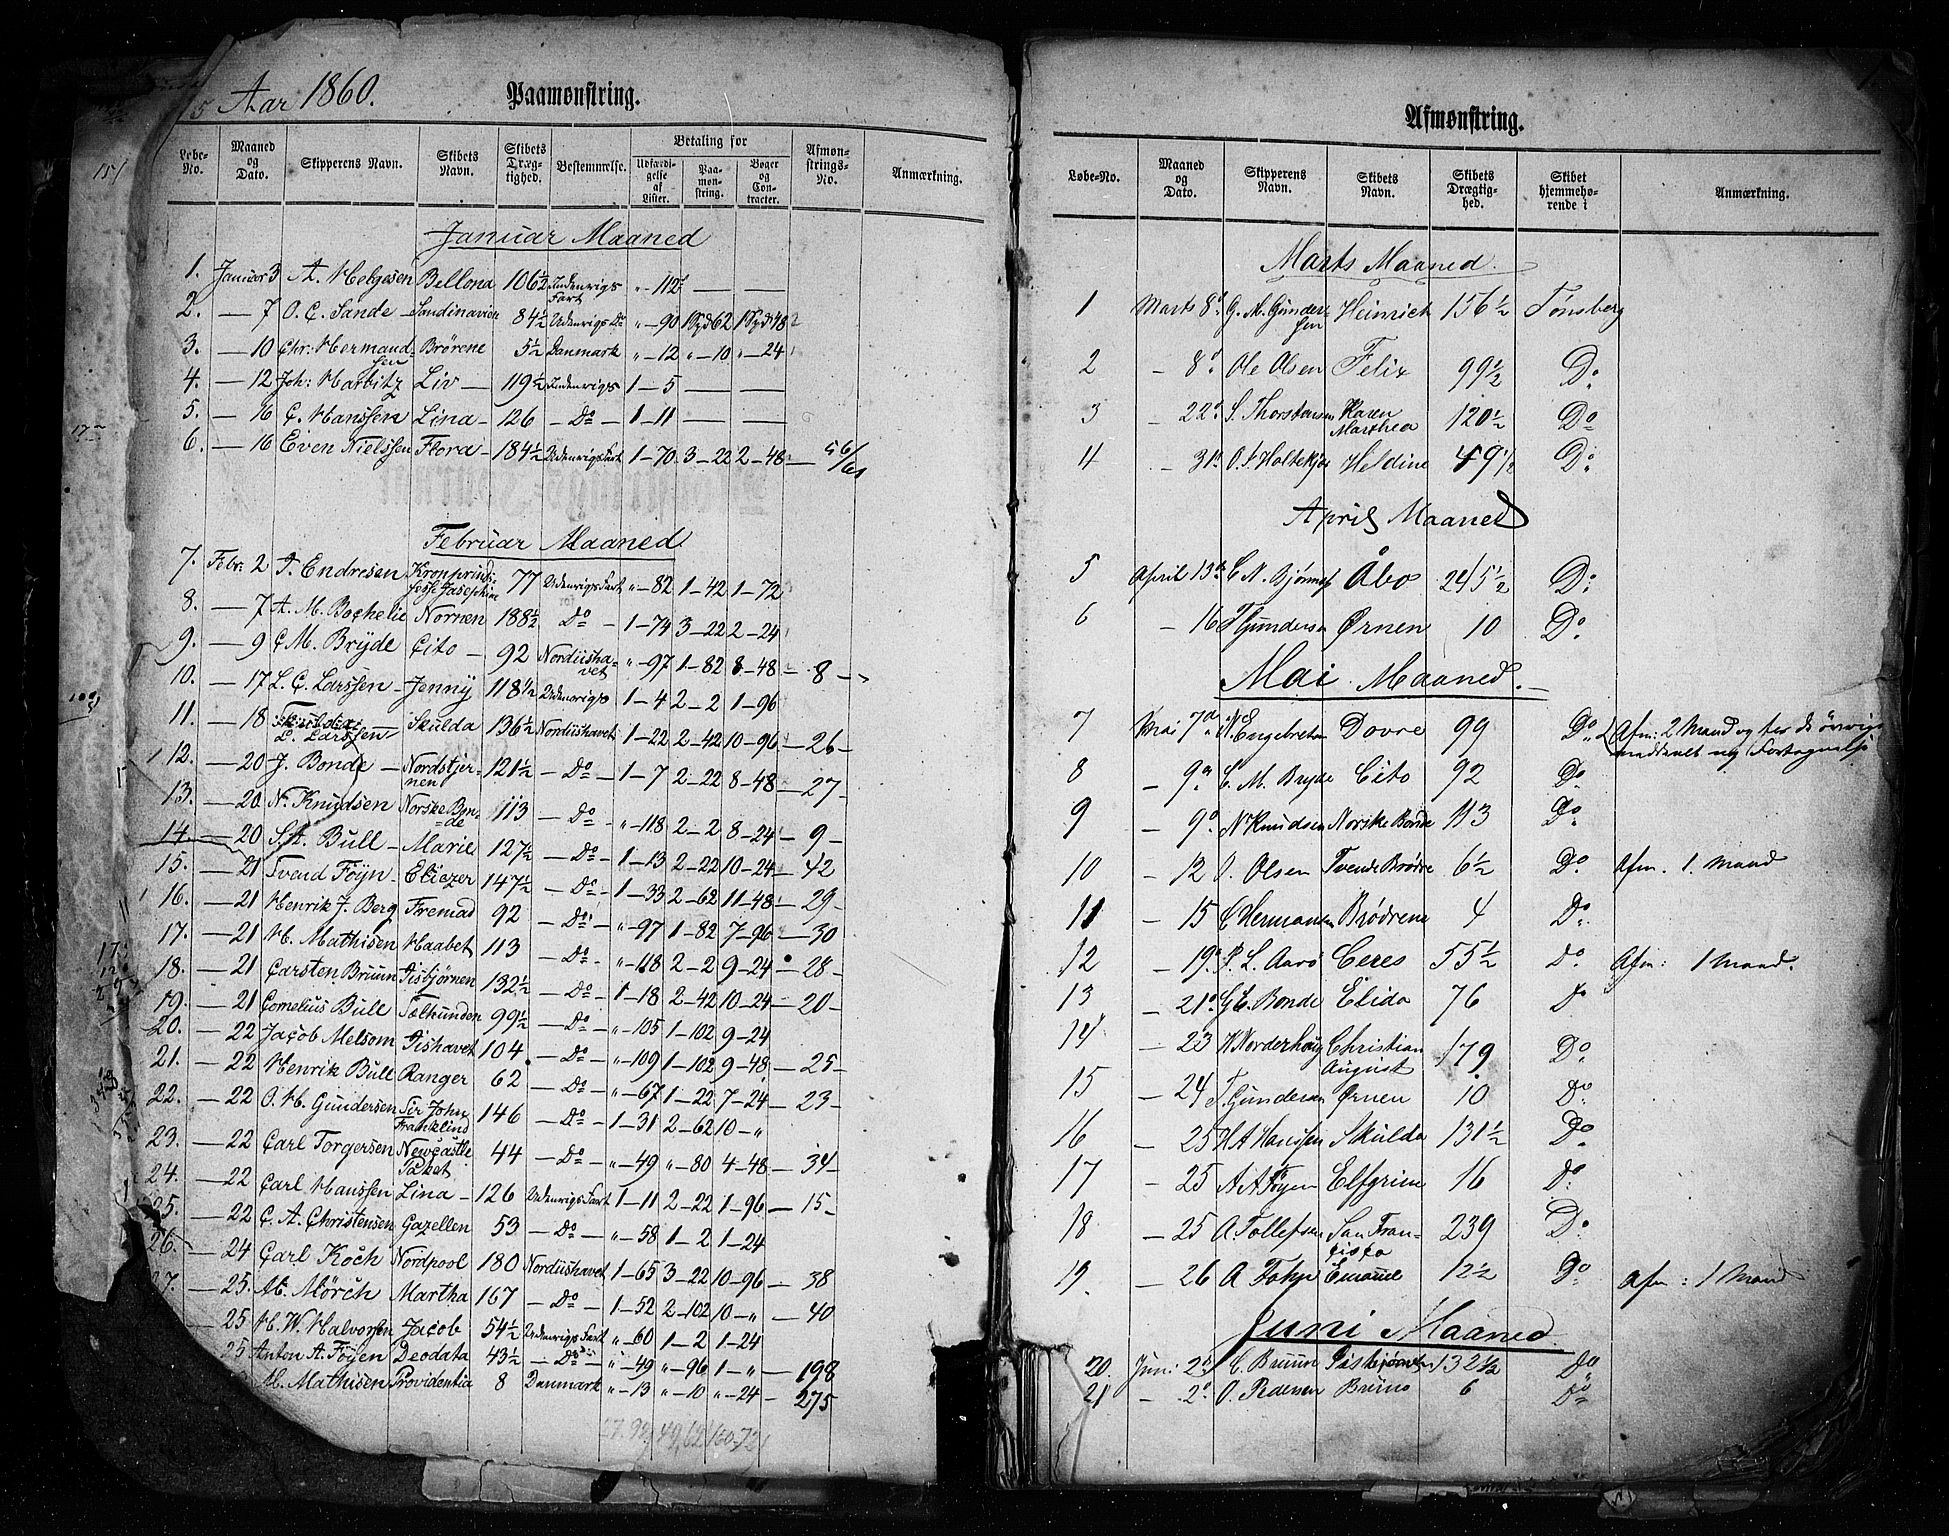 Aar 1860.
Paamønstring.
Løbe-No. Maaned og Dato. Skipperens Navn. Skibets Navn. Skibets Dræg-tighed. Bestemmelse. Betaling for Udfærdi-gelse af Lister. Paa-møn-string. Bøger og Con-tracter. Afmøn-strings-No. Anmærkning.
Januar Maaned
1. Januar 3 A. Helgesen Bellona 106½ Indenrigs Fart „-112 — —
2. — 7 O. C. Sande Scandinavien 84½ Udenrigs Do „-90 1 Spd 62 1 Spd 48
3. — 10 Chr: Hermandsen Brørene 5½ Danmark „-12 „-10 „-24
4. — 12 Joh: Harbitz Liv 119½ Indenrigs 1-5 — —
5. — 16 C. Hanssen Lina 126 Do 1-11 — —
6. — 16 Even Nielssen Flora 184½ Udenrigs Fart 1-70 3-22 2-48 56/61
Februar Maaned
7. Febr. 2 T. Endresen Kronprindsesse Josephine 77 Udenrigs Fart „-82 1-42 1-72
8. — 7 A. M. Bochelie Nornen 188½ Do 1-74 3-22 2-24
9. — 9 C. M. Bryde Cito 92 Nordiishavet „-97 1-82 8-48 8
10. — 17 L. C. Larssen Jenny 118½ Udenrigs 1-4 2-2 1-96
11. — 18 L. Larssen Skulda 136½ Nordiishavet 1-22 2-42 10-96 26
12. — 20 J. Bonde Nordstjernen 121½ Do 1-7 2-22 8-48 27
13. — 20 N. Knudsen Norske Bonde 113 Do „-118 2-2 8-24 9
14. — 20 S. A. Bull Marie 127½ Do 1-13 2-22 10-24 42
15. — 21 Svend Föyn Eliezer 147½ Do 1-33 2-62 11-48 29
16. — 21 Henrik J. Berg Fremad 92 Do „-97 1-82 7-96 30
17. — 21 H. Mathisen Haabet 113 Do „-118 2-2 9-24 28
18. — 21 Carsten Bruun Iisbjørnen 132½ Do 1-18 2-42 10-24 20
19. — 21 Cornelius Bull Sælhunden 99½ Do „-105 1-102 9-24
20. — 22 Jacob Melsom Iishavet 104 Do „-109 1-102 9-48 25
21. — 22 Henrik Bull Ranger 62 Do „-67 1-22 7-24 23
22. — 22 O. H. Gundersen Sir John Franklind 146 Do 1-31 2-62 10-„
23. — 22 Carl Torgersen Newcastle Paket 44 Do „-49 „-80 4-48 34
24. — 22 Carl Hanssen Lina 126 Udenrigs Fart 1-11 2-22 1-96 15
25. — 22 C. A. Christensen Gazellen 53 Do „-58 1-2 1-24
26. — 24 Carl Koch Nordpool 180 Nordiishavet 1-65 3-22 10-96 38
27. — 25. H. Mörch Martha 167 Do 1-52 2-102 10-„ 40
25 H. W. Halvorsen Jacob 54½ Udenrigs Fart „-60 1-2 1-24
25 Anton A. Föyen Deodata 43½ Do „-49 „-96 1-„ 198
H. Mathisen Providentia 8 Danmark „-13 „-10 „-24 275
Afmønstring.
Løbe-No. Maaned og Dato. Skipperens Navn. Skibets Navn. Skibets Drægtig-hed. Skibet hjemmehø-rende i Anmærkning.
Marts Maaned.
1 Marts 8d G. M. Gundersen Heinrich 156½ Tønsberg
2 — 8d Ole Olsen Felix 99½ Do
3 — 22d S. Thorstensen Karen Marthea 120½ Do
4 — 31d O. J. Holtekjær Heldine 49½ Do
April Maaned
5 April 13d C. N. Bjönnes Åbo 245½ Do
6 — 16 T Gundersen Ørnen 10 Do
Mai Maaned.
7 Mai 7d N. Engebretsen Dovre 99 Do Afm: 2 Mand og for de övrige meddeelt ny Fortegnelse
8 — 9d C. M. Bryde Cito 92 Do
9 — 9d N Knudsen Norske Bonde 113 Do
10 — 12 O. Olsen Tvende Brødre 6½ Do Afm. 1 Mand
11 — 15 C Hermansen Brødrene 4 Do
12 — 19d P. L. Aarö Ceres 55½ Do Afm: 1 Mand.
13 — 21d G E. Bonde Elida 76 Do
14 — 23 H Norderhoug Christian August 179 Do
15 — 24 T. Gundersen Ørnen 10 Do
16 — 25 H A Hanssen Skulda 131½ Do
17 — 25 A A Föyen Elfgrim 16 Do
18 — 25 A. Tollefsen San Francisco 239 Do
19. — 26 A Emanuel 12½ Do Afm: 1 Mand
Juni Maaned
20. Juni 2d C. Bruun Iisbjørnen 132½ Do
21 — 2d O. Pedersen Bruno 6 Do